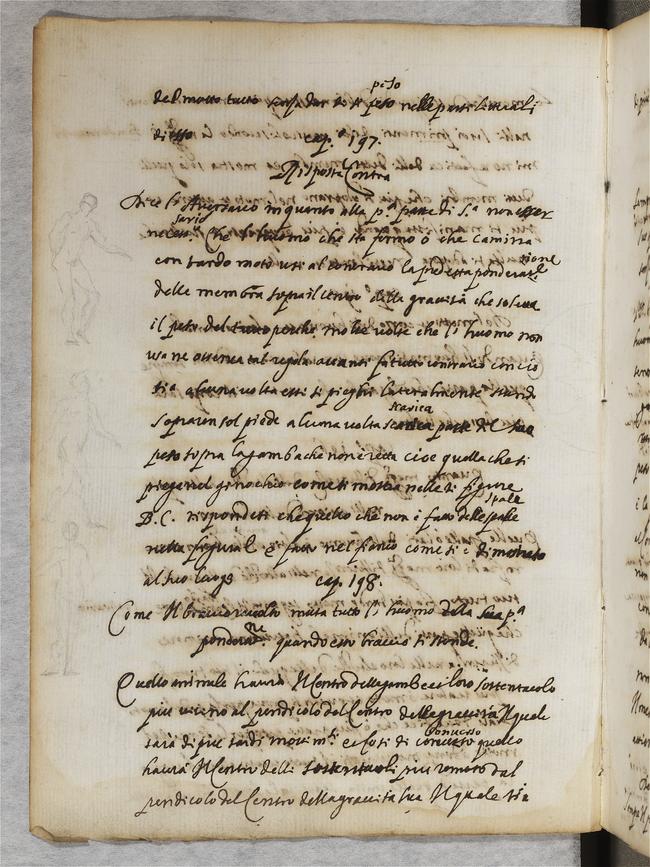 peso
del moto tutto senza dar di se peso nelle parti laterali
di esso cap.º 197.
Risposta Contra
Dice l'Aversario in quanto alla p.ª parte di s.ª non esser
sario
neces. Che l'huomo che sta fermo ò che camina
tione
con tardo moto usi al continuo la predetta ponderaz.
delle membra sopra il centro della gravità che sostiene
il peso del tutto perche molte volte che l'huomo non
usa ne osserva tal regola avanti fa tutto contrario con cio
sia alcuna volta essi si pieghi lateralmente stando
sopra un sol piede alcuna volta scarica parte del suo
scarica
peso sopra la gamba che non è retta cioe quella che si
piega nel ginochio come si mostra nelle 2 figure
spalle
B. C. rispondesi che quello che non è fatto delle spalle
nella figura C è fatto nel fianco come si è dimostrato
al suo luogo cap. 198.
Come Il braccio racolto muta tutto l'huomo dalla sua p.ª
ne
ponderaz. quando esso braccio si stende.
Quello animale havrà Il Centro delle gambe ei loro sostentacolo
piu vicino al perdicolo del Centro della gravità Il quale
sarà di piu tardi movim.ti e cosi di
Converso
converso quello
havrà Il Centro delli sostentacoli piu remoto dal
perdicolo del Centro della gravità sua Il quale sia